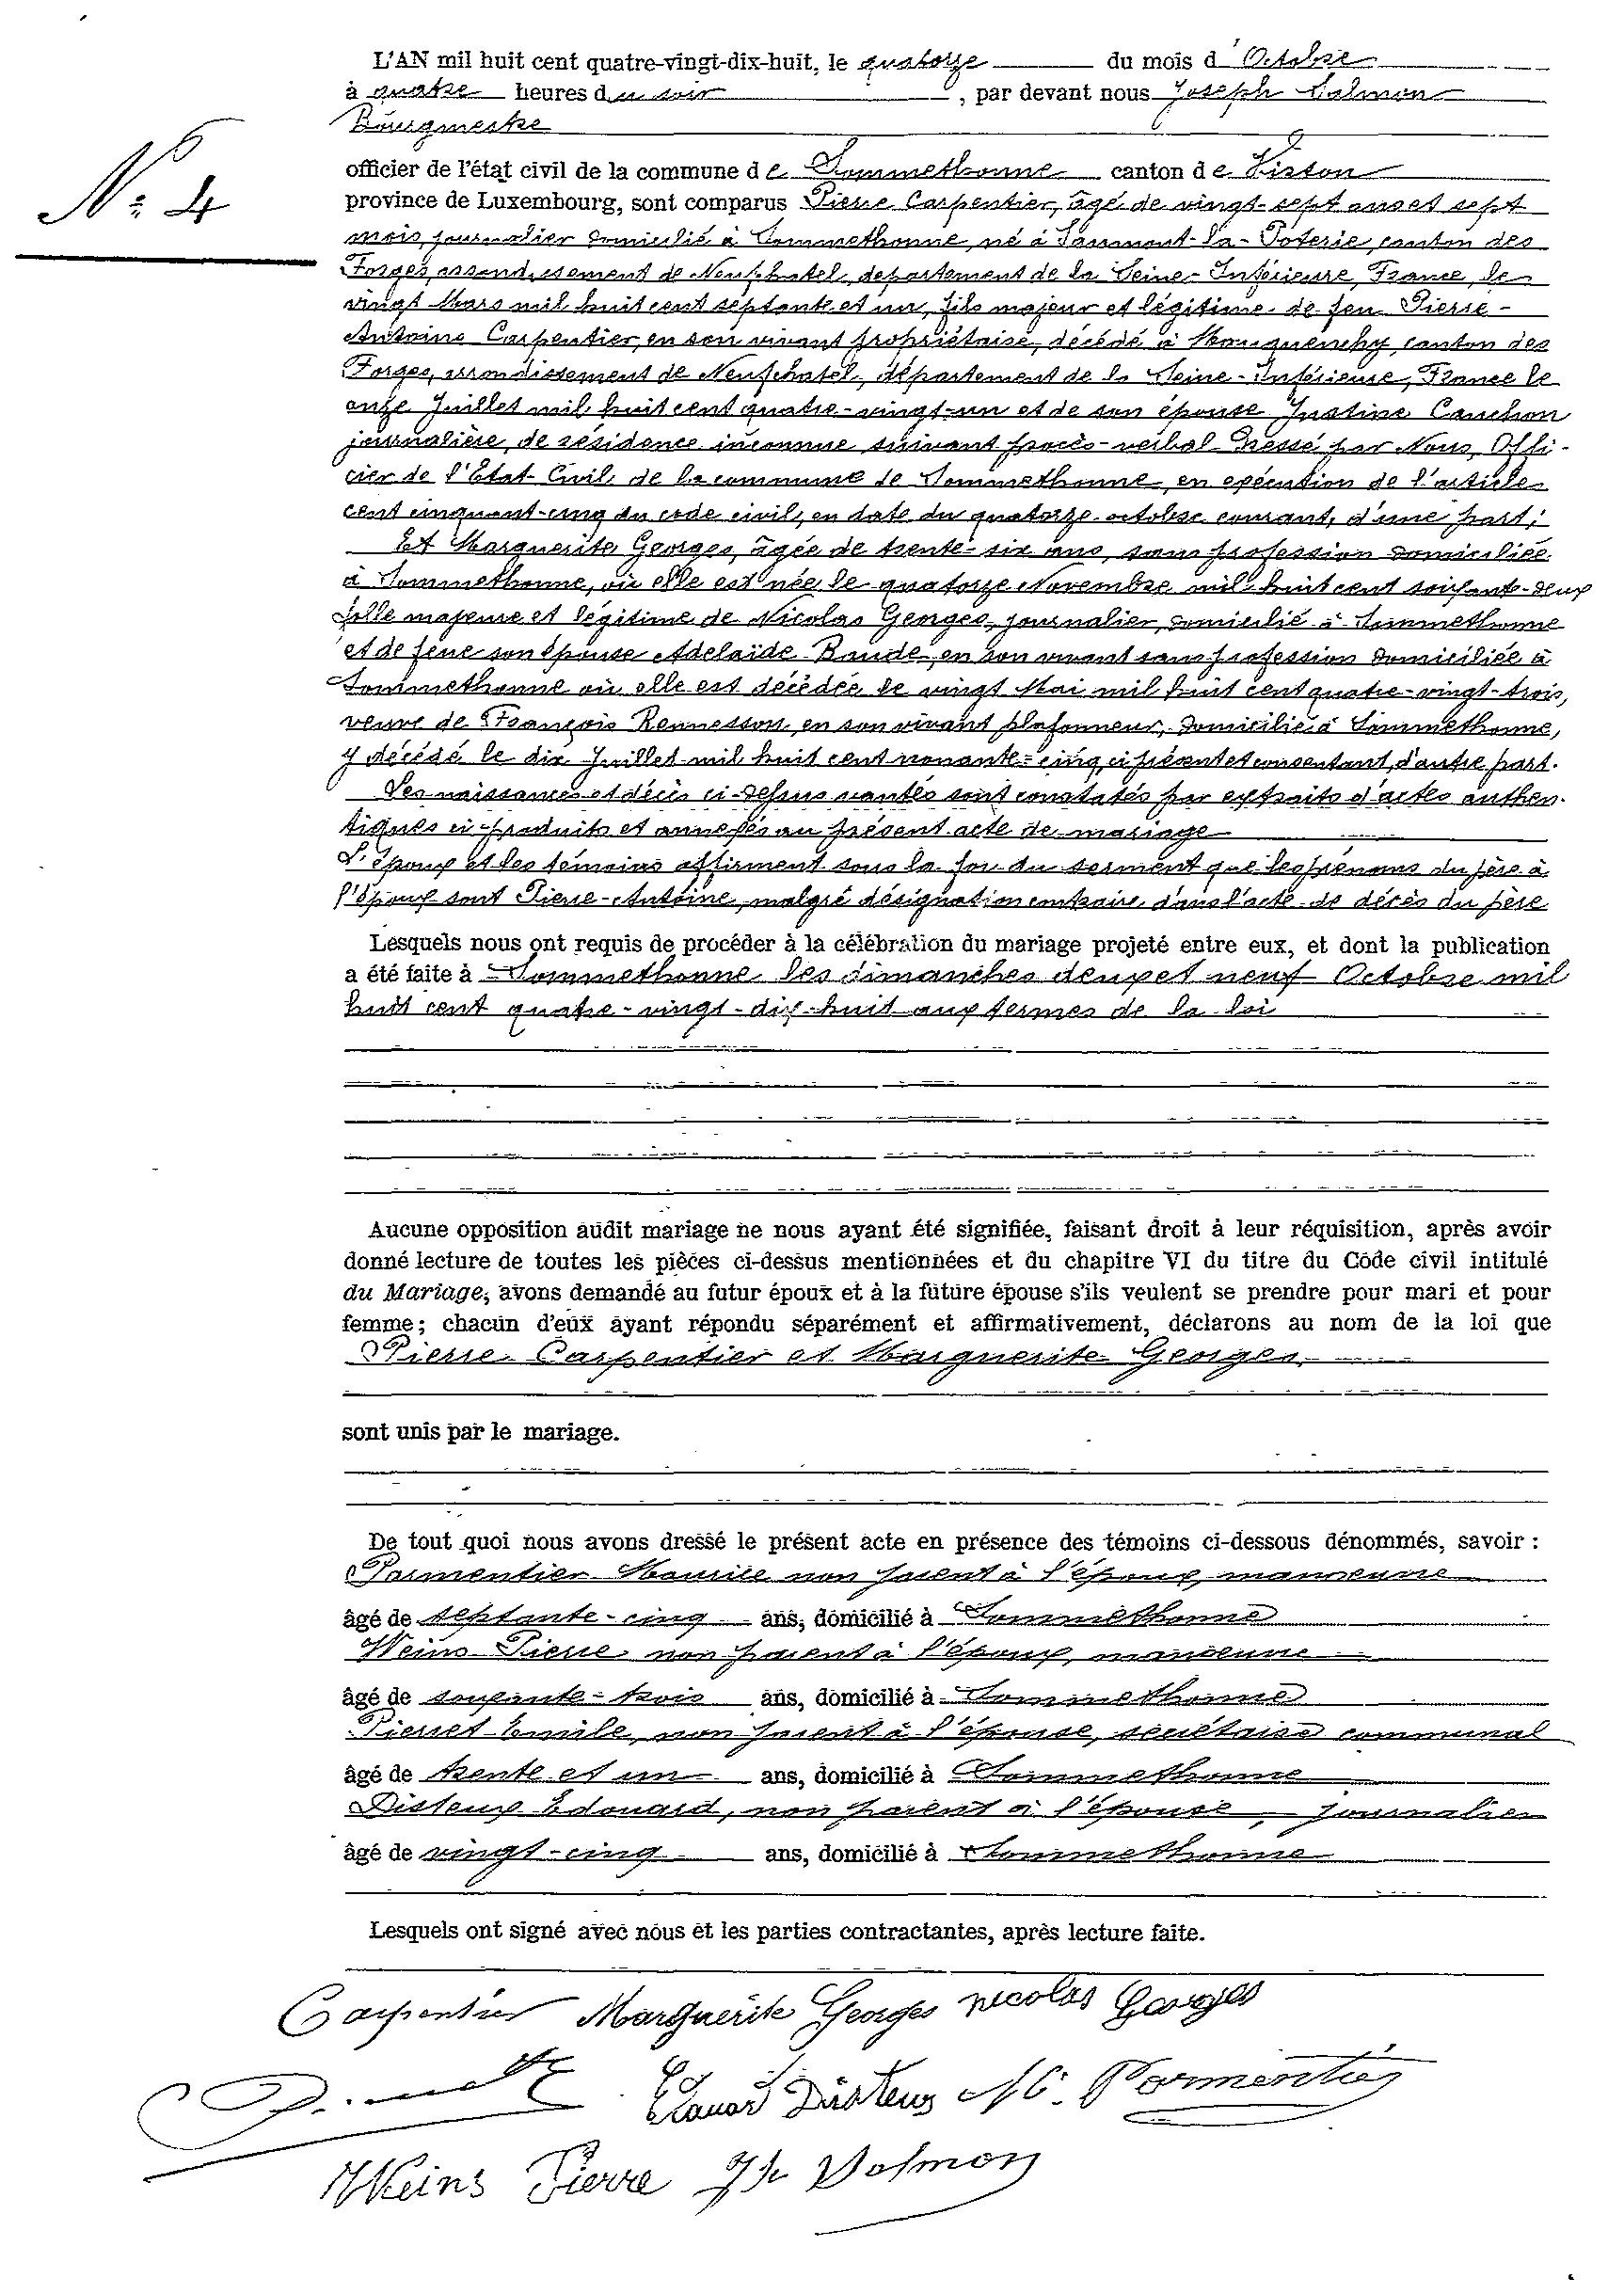 L'AN mil huit cent quatre-vingt-dix-huit, le quatorze du mois d'Octobre
à quatre heures du soir, par devant nous Joseph Salmon
Bourgmestre
N° 4
officier de l'état civil de la commune de Sommethonne canton de Virton
province de Luxembourg, sont comparus Pierre Carpentier, âgé de vingt-sept ans et sept
mois, journalier domicilié à Sommethonne, né à Saumont-la-Poterie, canton des
Forges, arrondissement de Neufchatel, departement de la Seine-Inférieure, France, le
vingt Mars mil huit cent septante et un, fils majeur et légitime de feu Pierre-
Antoine Carpentier, en son vivant propriétaire, décédé à Mauquenchy, canton des
Forges, arrondissement de Neufchatel, département de la Seine-Inférieure, France le
onze Juillet mil huit cent quatre-vingt-un et de son épouse Justine Cauchon
journalière, de résidence inconnue suivant procès-verbal dressé par Nous, Offi-
cier de l'Etat Civil de la commune de Sommethonne, en exécution de l'article
cent cinquant-cinq du code civil, en date du quatorze octobre courant, d'une part;
Et Marguerite Georges, âgée de trente-six ans, sans profession domiciliée
à Sommethonne, où elle est née le quatorze Novembre mil huit cent soixante-deux
fille majeure et légitime de Nicolas Georges, journalier, domicilié à Sommethonne
et de feue son épouse Adelaide Baudé, en son vivant sans profession domiciliée à
Sommethonne où elle est décédée le vingt Mai mil huit cent quatre-vingt-trois,
veuve de François Rennesson, en son vivant plafonneur, domicilié à Sommethonne,
y décédé le dix Juillet mil huit cent nonante-cinq, ci présent et consentant, d'autre part.
Les naissances et décès ci-dessus vantés sont constatés par extraits d'actes authen-
tiques ci-produits et annexés au présent acte de mariage
L'époux et les témoins affirment sous la foi du serment que les prénoms du père à
l'époux sont Pierre-Antoine, malgré désignation contraire dans l'acte de décès du père
Lesquels nous ont requis de procéder à la célébration du mariage projeté entre eux, et dont la publication
a été faite à Sommethonne les dimanches deux et neuf Octobre mil
huit cent quatre-vingt-dix-huit aux termes de la loi
Aucune opposition audit mariage ne nous ayant été signifiée, faisant droit à leur réquisition, après avoir
donné lecture de toutes les pièces ci-dessus mentionnées et du chapitre VI du titre du Code civil intitulé
du Mariage, avons demandé au futur époux et à la future épouse s'ils veulent se prendre pour mari et pour
femme; chacun d'eux ayant répondu séparément et affirmativement, déclarons au nom de la loi que
Pierre Carpentier et Marguerite Georges
sont unis par le mariage.
De tout quoi nous avons dressé le présent acte en présence des témoins ci-dessous dénommés, savoir :
Parmentier Maurice non parent à l'époux, manoeuvre
âgé de septante-cinq ans, domicilié à Sommethonne
Weins Pierre non parent à l'époux, manoeuvre
âgé de soixante-trois ans, domicilié à Sommethonne
Pierret Emile, non parent à l'épouse, secrétaire communal
âgé de trente et un ans, domicilié à Sommethonne
Disteux Edouard, non parent à l'épouse, journalier
âgé de vingt-cinq ans, domicilié à Sommethonne
Lesquels ont signé avec nous et les parties contractantes, après lecture faite.
Carpentier Marguerite Georges nicolas Georges
Edouard Disteux M. Parmentier
Weins Pierre Jh Salmon